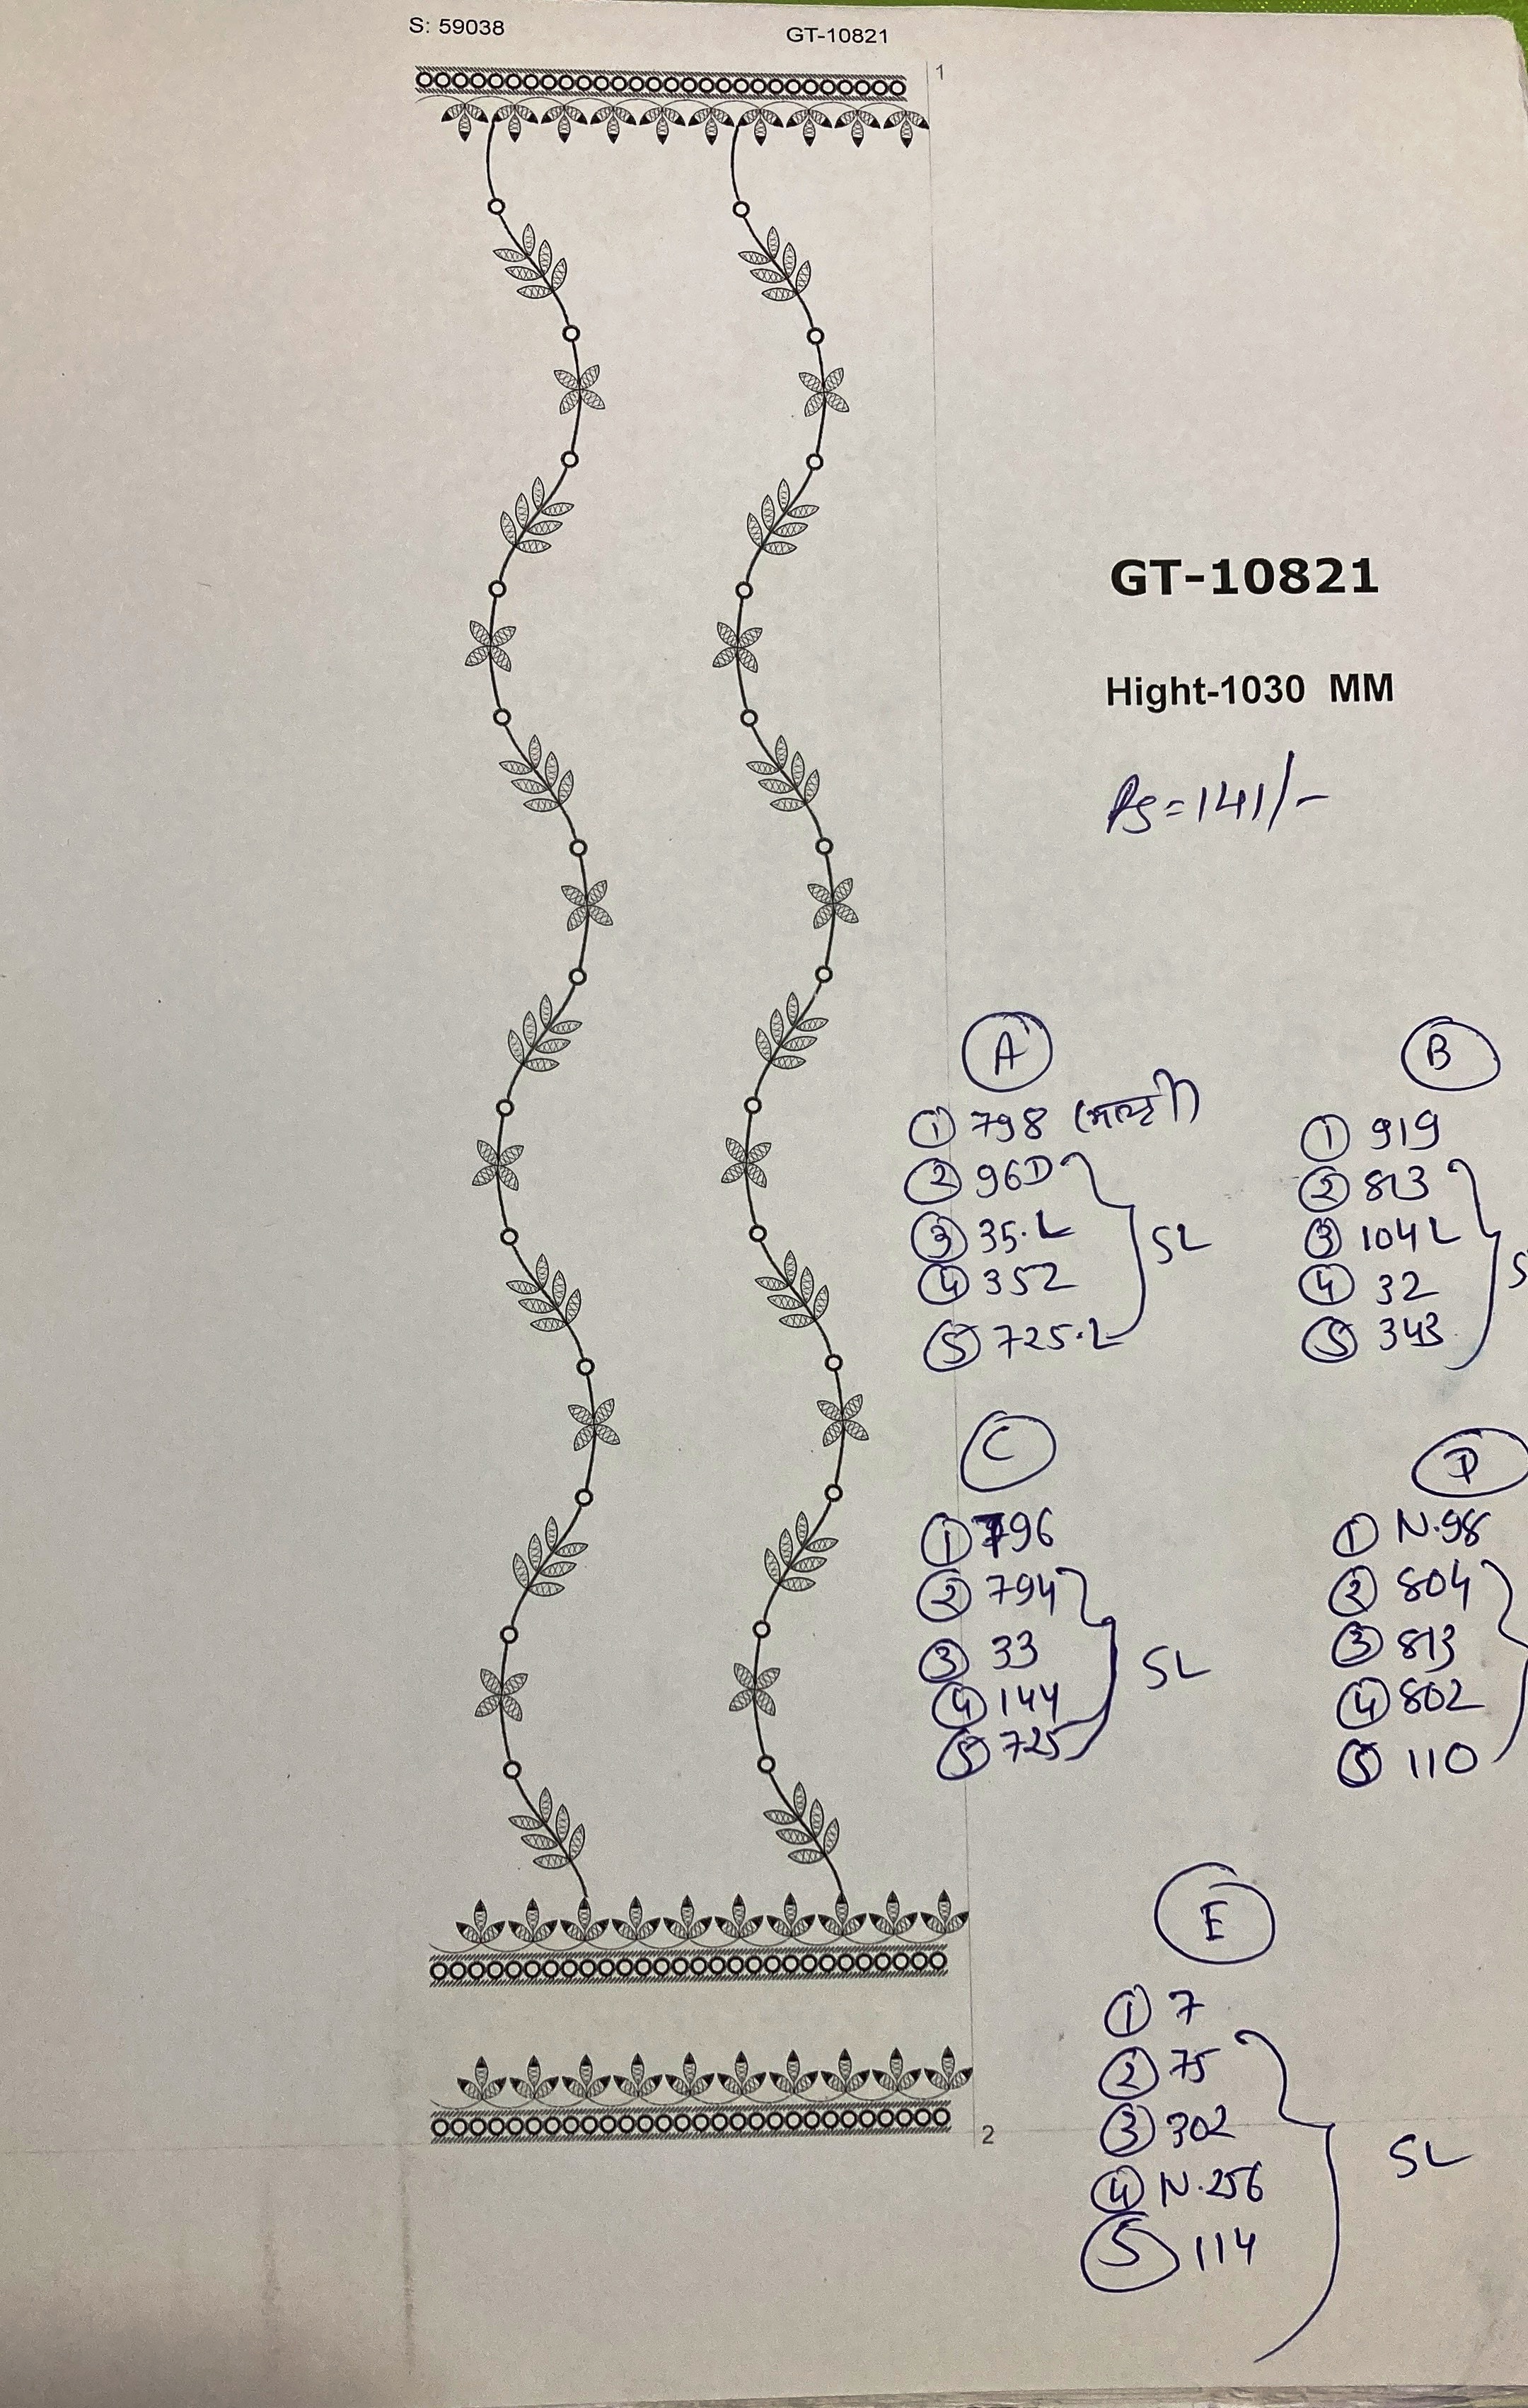 S: 59038
GT-10821
1
GT-10821
Hight-1030 MM
Rs=141/-
A
① 798 (मल्टी)
② 96D
③ 35.L
④ 352
⑤ 725.L
SL
B
① 919
② 813
③ 104L
④ 32
⑤ 343
S
C
① 796
② 794
③ 33
④ 144
⑤ 725
SL
D
① N.98
② 804
③ 813
④ 802
⑤ 110
E
① 7
② 75
③ 302
④ N.256
⑤ 114
SL
2